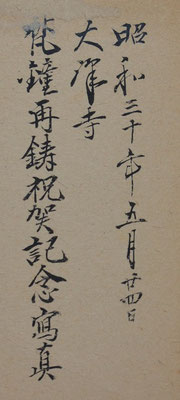 昭和三十年五月廿四日
大澤寺
梵鐘再鋳祝賀記念寫真